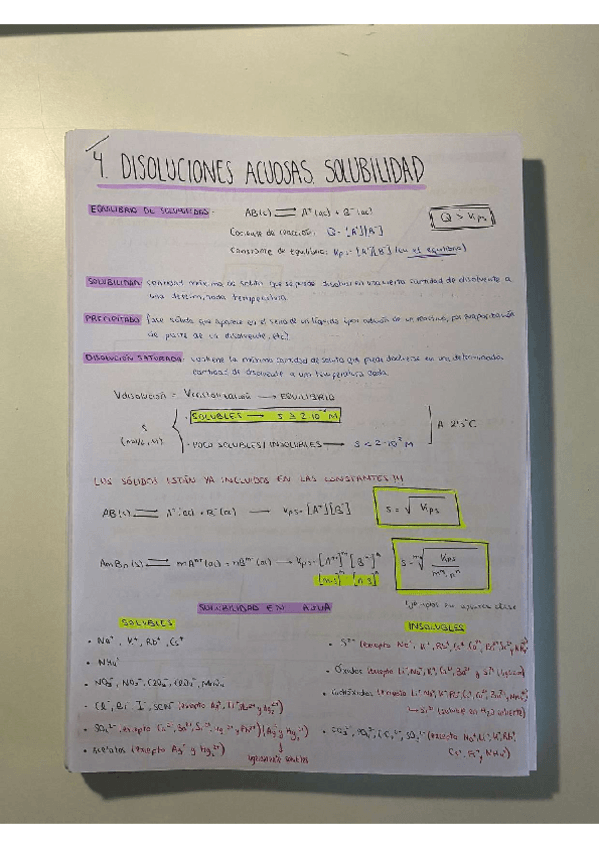 4. DISOLUCIONES ACUOSAS. SOLUBILIDAD
EQUILIBRIO DE SOLUBILIDAD - AB(s) ⇌ A⁺(ac) + B⁻(ac)
Q > Kps
Cociente de reacción: Q = [A⁺][B⁻]
Constante de equilibrio: Kps = [A⁺][B⁻] (en el equilibrio)
SOLUBILIDAD: cantidad máxima de soluto que se puede disolver en una cierta cantidad de disolvente a
una determinada temperatura.
PRECIPITADO: fase sólida que aparece en el seno de un líquido (por adición de un reactivo, por evaporación
de parte de un disolvente, etc)
DISOLUCIÓN SATURADA: contiene la máxima cantidad de soluto que puede disolverse en una determinada
cantidad de disolvente a una temperatura dada.
Vdisolución = Vcristalización → EQUILIBRIO
S
(mol/L, M)
· SOLUBLES → S ≥ 2·10⁻² M
· POCO SOLUBLES/INSOLUBLES → S < 2·10⁻² M
A 25°C
LOS SÓLIDOS ESTÁN YA INCLUIDOS EN LAS CONSTANTES !!!
AB(s) ⇌ A⁺(ac) + B⁻(ac) → Kps = [A⁺][B⁻]
S = √Kps
AmBn(s) ⇌ mAⁿ⁺(ac) + nBᵐ⁻(ac) → Kps = [Aⁿ⁺]ᵐ [Bᵐ⁻]ⁿ
[m·s]ᵐ [n·s]ⁿ
S = ᵐ⁺ⁿ√(Kps / mᵐ·nⁿ)
SOLUBILIDAD EN AGUA
Ejemplos en apuntes clase
SOLUBLES
· Na⁺, K⁺, Rb⁺, Cs⁺
· NH₄⁺
· NO₃⁻, NO₂⁻
· Cl⁻, Br⁻, I⁻, SCN⁻ (excepto Ag⁺
· SO₄²⁻ (excepto
· acetatos (excepto Ag⁺ y Hg₂²⁺)
ligeramente solubles
INSOLUBLES
· S²⁻ (excepto Na⁺, K⁺, Rb⁺
· Óxidos (excepto Li⁺, Na⁺, K⁺
· Hidróxidos (excepto Li⁺, Na⁺, K⁺
(soluble en H₂O caliente)
· CO₃²⁻, PO₄³⁻